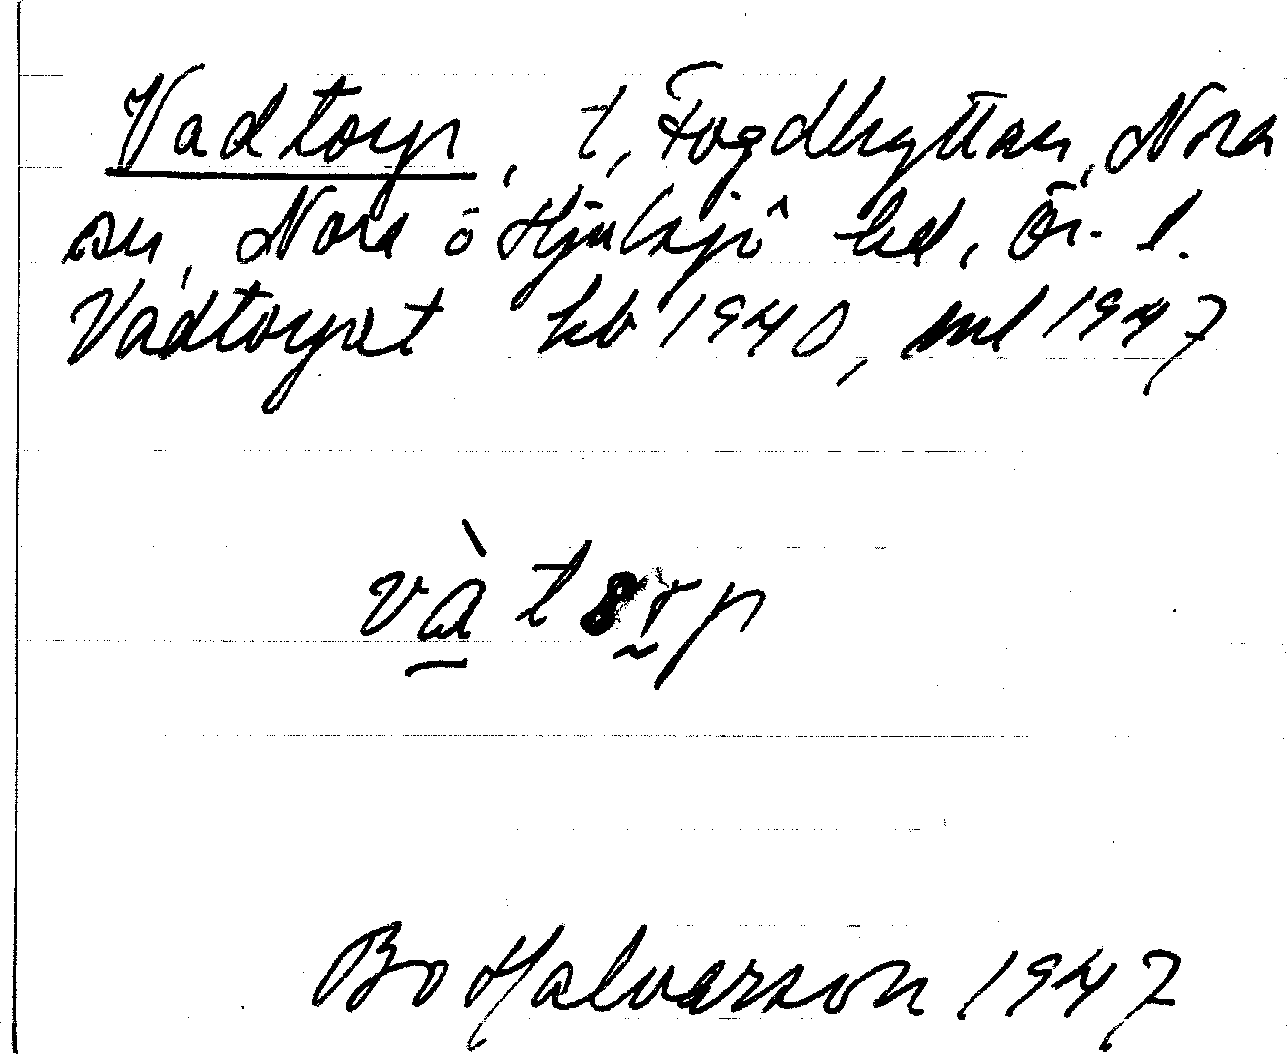 Vadtorp, t, Fogdhyttan, Nora
sn, Nora o Hjulsjö bd, Ör. l.
Vadtorpet kb 1940, ml 1947
Bo Halvarson 1947